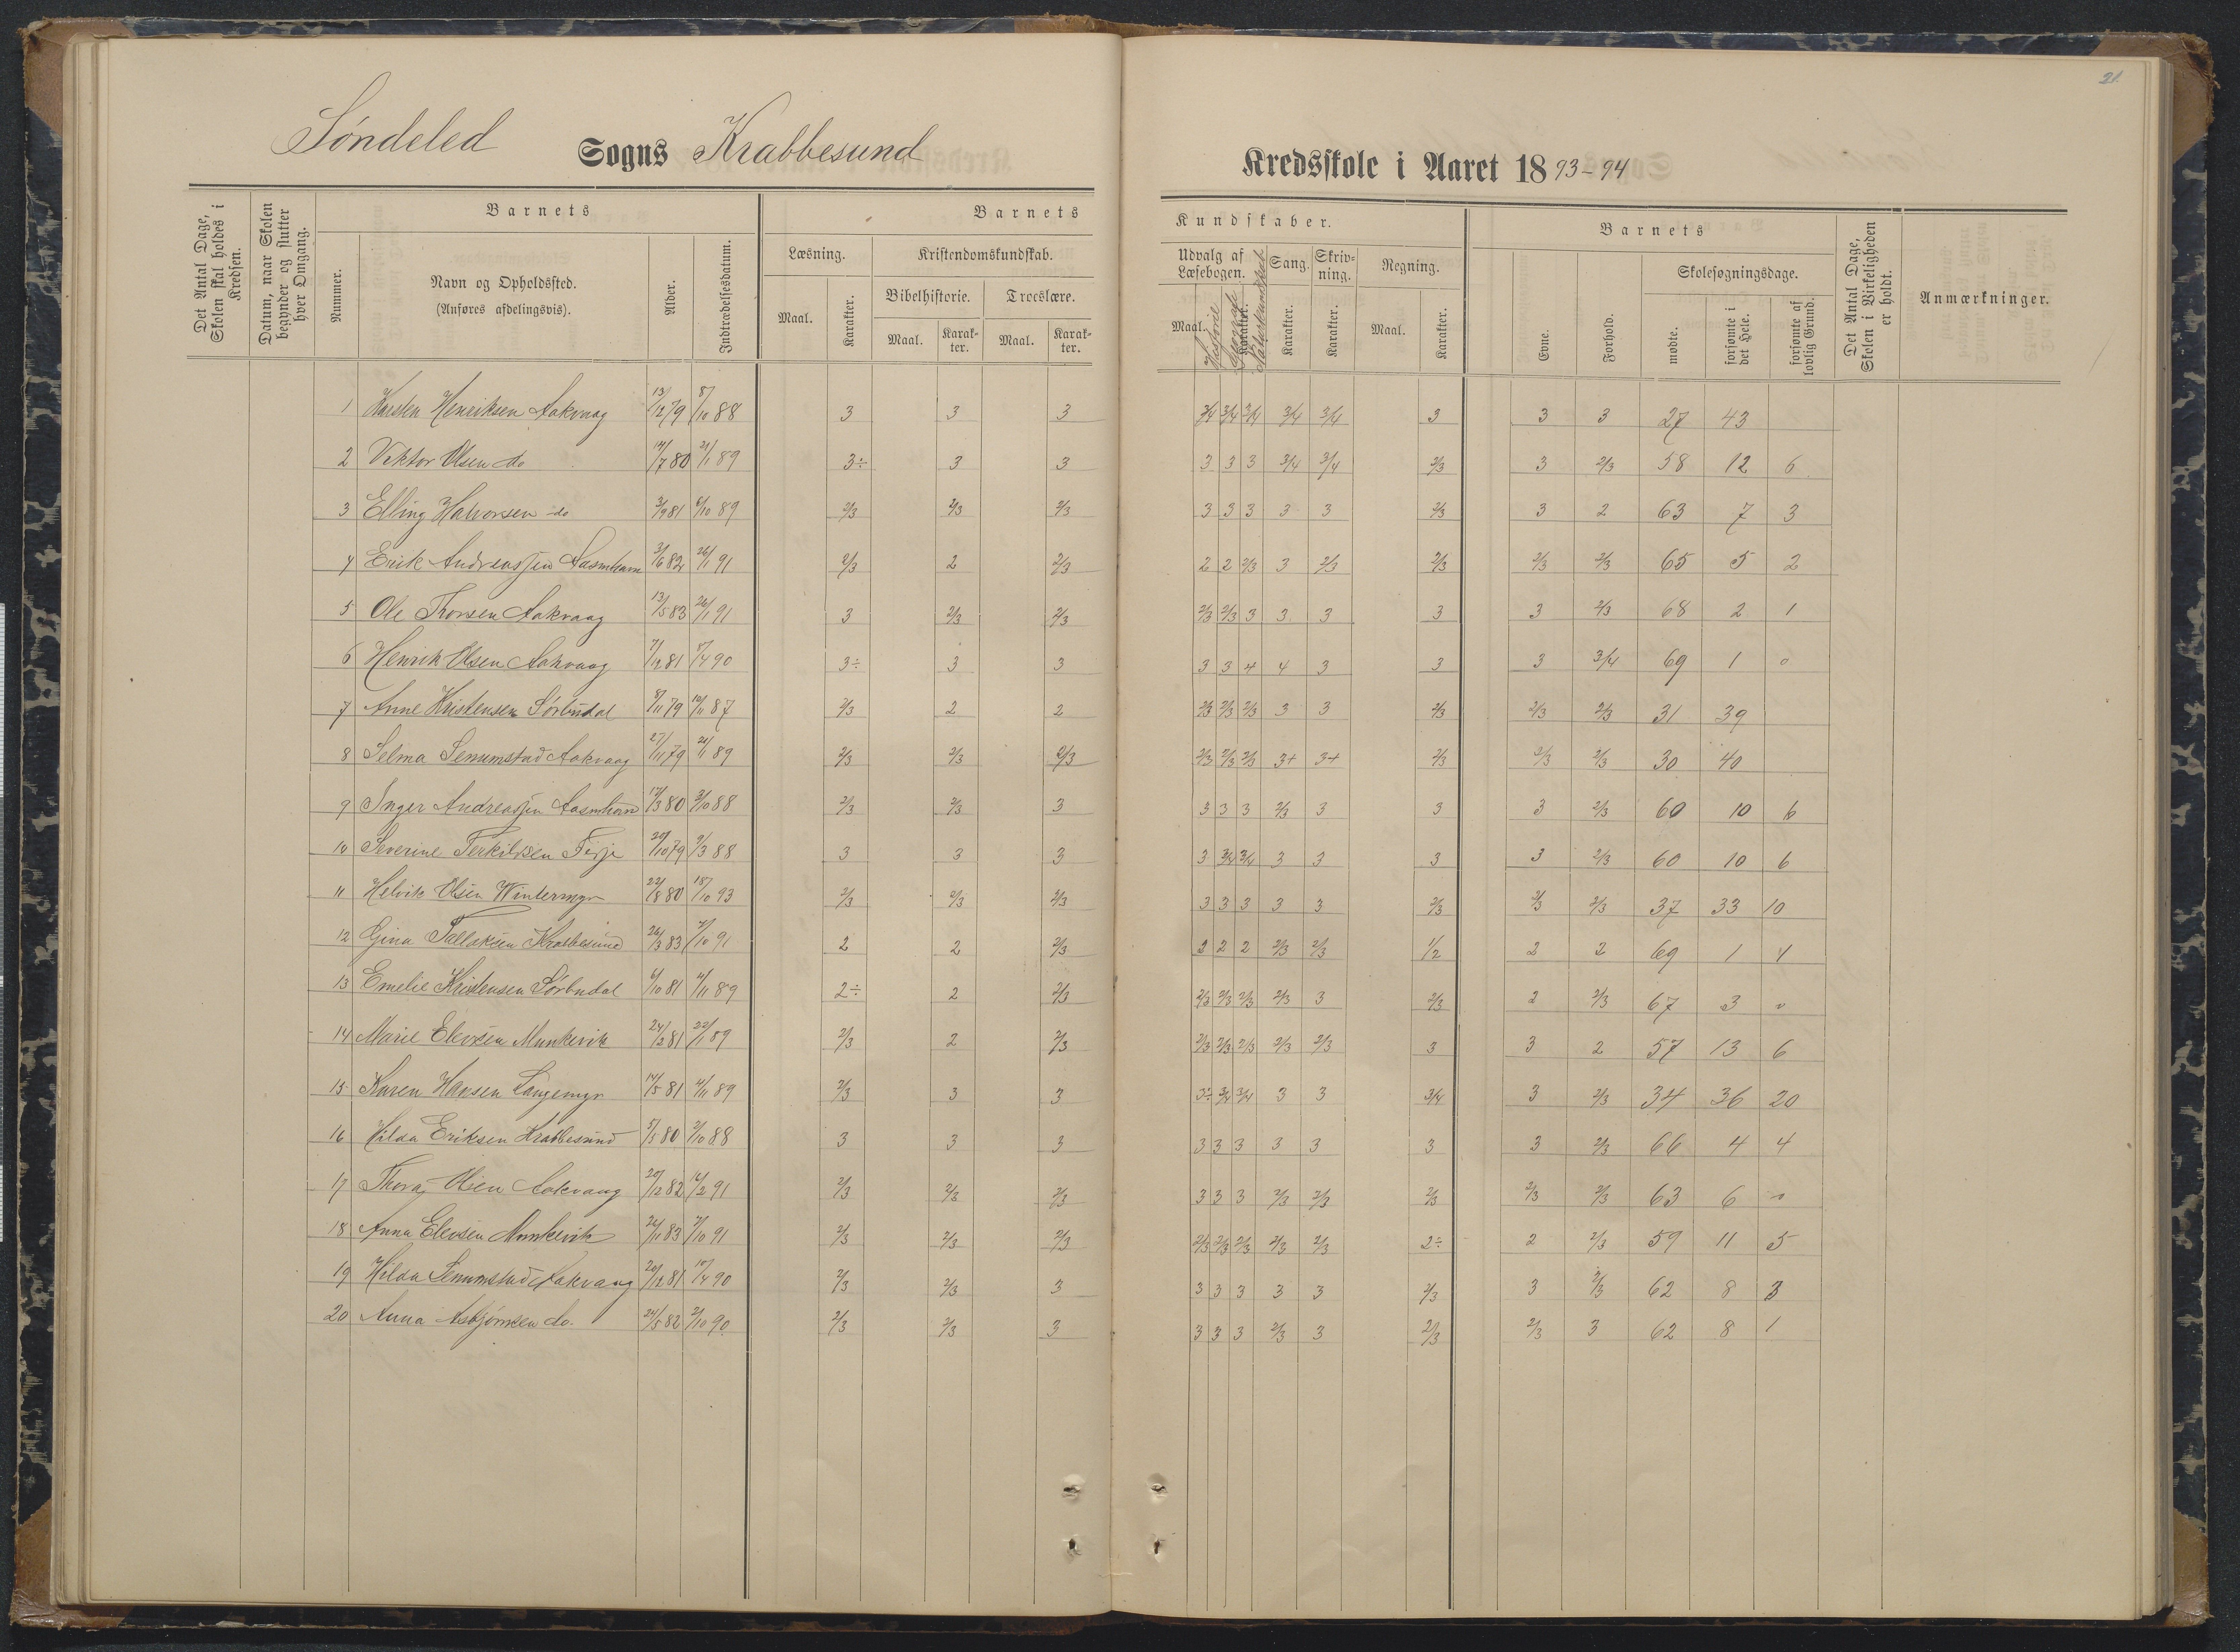 21.
Söndeled Sogns Krabbesund Kredsskole i Aaret 1893-94
Det Antal Dage, Skolen skal holdes i Kredsen.
Datum, naar Skolen begynder og slutter hver Omgang.
Barnets
Nummer.
Navn og Opholdssted.
(Anføres afdelingsvis).
Alder.
Indtrædelsesdatum.
Barnets Kundskaber.
Læsning.
Maal.
Karakter.
Kristendomskundskab.
Bibelhistorie.
Troeslære.
Maal.
Karakter.
Maal.
Karakter.
Udvalg af Læsebogen.
Maal.
Karakter.
Historie
Sang.
Karakter.
Skrivning.
Karakter.
Regning.
Maal.
Karakter.
Barnets
Evne.
Forhold.
Skolesøgningsdage.
mødte.
forsømte i det Hele.
forsømte af lovlig Grund.
Det Antal Dage, Skolen i Virkeligheden er holdt.
Anmærkninger.
1 Karsten Henriksen Aakvaag 13/12 79 8/10 88 3 3 3 3/4 3/4 3/4 3/4 3/4 3 3 3 27 43
2 Viktor Olsen do 14/7 80 21/1 89 3÷ 3 3 3 3 3 3/4 3/4 2/3 3 2/3 58 12 6
3 Elling Halvorsen do 3/9 81 6/10 89 2/3 2/3 2/3 3 3 3 3 3 2/3 3 2 63 7 3
4 Erik Andreassen 3/6 82 26/1 91 2/3 2 2/3 2 2 2/3 3 2/3 2/3 2/3 2/3 65 5 2
5 Ole Thorsen Aakvaag 13/5 83 26/1 91 3 2/3 2/3 2/3 2/3 3 3 3 3 3 2/3 68 2 1
6 Henrik Olsen Aakvaag 7/12 81 17/4 90 3÷ 3 3 3 3 4 4 3 3 3 3/4 69 1 0
7 Anne Kristensen Sørbudal 8/11 79 10/11 87 2/3 2 2 2/3 2/3 2/3 3 3 2/3 2/3 2/3 31 39
8 Selma Senumstad Aakvaag 27/11 79 21/1 89 2/3 2/3 2/3 2/3 2/3 2/3 3+ 3+ 2/3 2/3 2/3 30 40
9 Inger Andreassen 14/3 80 3/10 88 2/3 2/3 3 3 3 3 2/3 3 3 3 2/3 60 10 6
10 Severine Terkildsen Fie 20/10 79 9/3 88 3 3 3 3 3/4 3/4 3 3 3 3 2/3 60 10 6
11 Helvik Olsen Wintermyr 22/8 80 18/10 93 2/3 2/3 2/3 3 3 3 3 3 2/3 2/3 2/3 37 33 10
12 Gina Tallaksen Krabbesund 26/3 83 7/10 91 2 2 2/3 2 2 2 2/3 2/3 1/2 2 2 69 1 4
13 Emelie Kristensen Sørbudal 6/10 81 11/11 89 2÷ 2 2/3 2/3 2/3 2/3 2/3 3 2/3 2 2/3 67 3 0
14 Marie Elevsen Munkevik 24/2 81 22/1 89 2/3 2 2/3 2/3 2/3 2/3 2/3 2/3 3 3 2 57 13 6
15 Karen Hansen Langemyr 14/5 81 11/11 89 2/3 3 3 3÷ 3/4 3/4 3 3 3/4 3 2/3 34 36 20
16 Hilda Eriksen Krabbesund 5/5 80 2/10 88 3 3 3 3 3 3 3 3 3 3 2/3 66 4 4
17 Thora Olsen Aakvaag 20/12 82 16/2 91 2/3 2/3 2/3 3 3 3 2/3 2/3 2/3 2/3 2/3 63 6 0
18 Anna Elevsen Munkevik 26/11 83 7/10 91 2/3 2/3 2/3 2/3 2/3 2/3 2/3 2/3 2÷ 2 2/3 59 11 5
19 Hilda Senumstad Aakvaag 20/12 81 17/4 90 2/3 2/3 3 3 3 3 3 3 2/3 3 2/3 62 8 3
20 Anna Asbjørnsen do. 24/5 82 2/10 90. 2/3 2/3 3 3 3 3 2/3 3 2/3 2/3 3 62 8 1